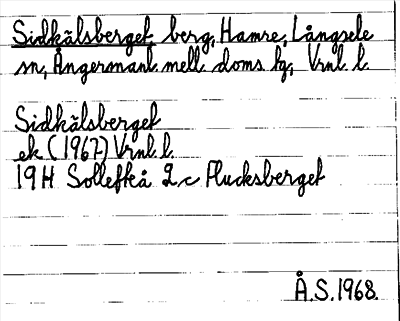 Sidkälsberget, berg, Hamre, Långsele
sn, Ångermanl. mell. doms. hg, Vrnl. l.
Sidkälsberget
ek (1967) Vrnl. l.
19H Sollefteå 2 c Plucksberget
Å.S. 1968.